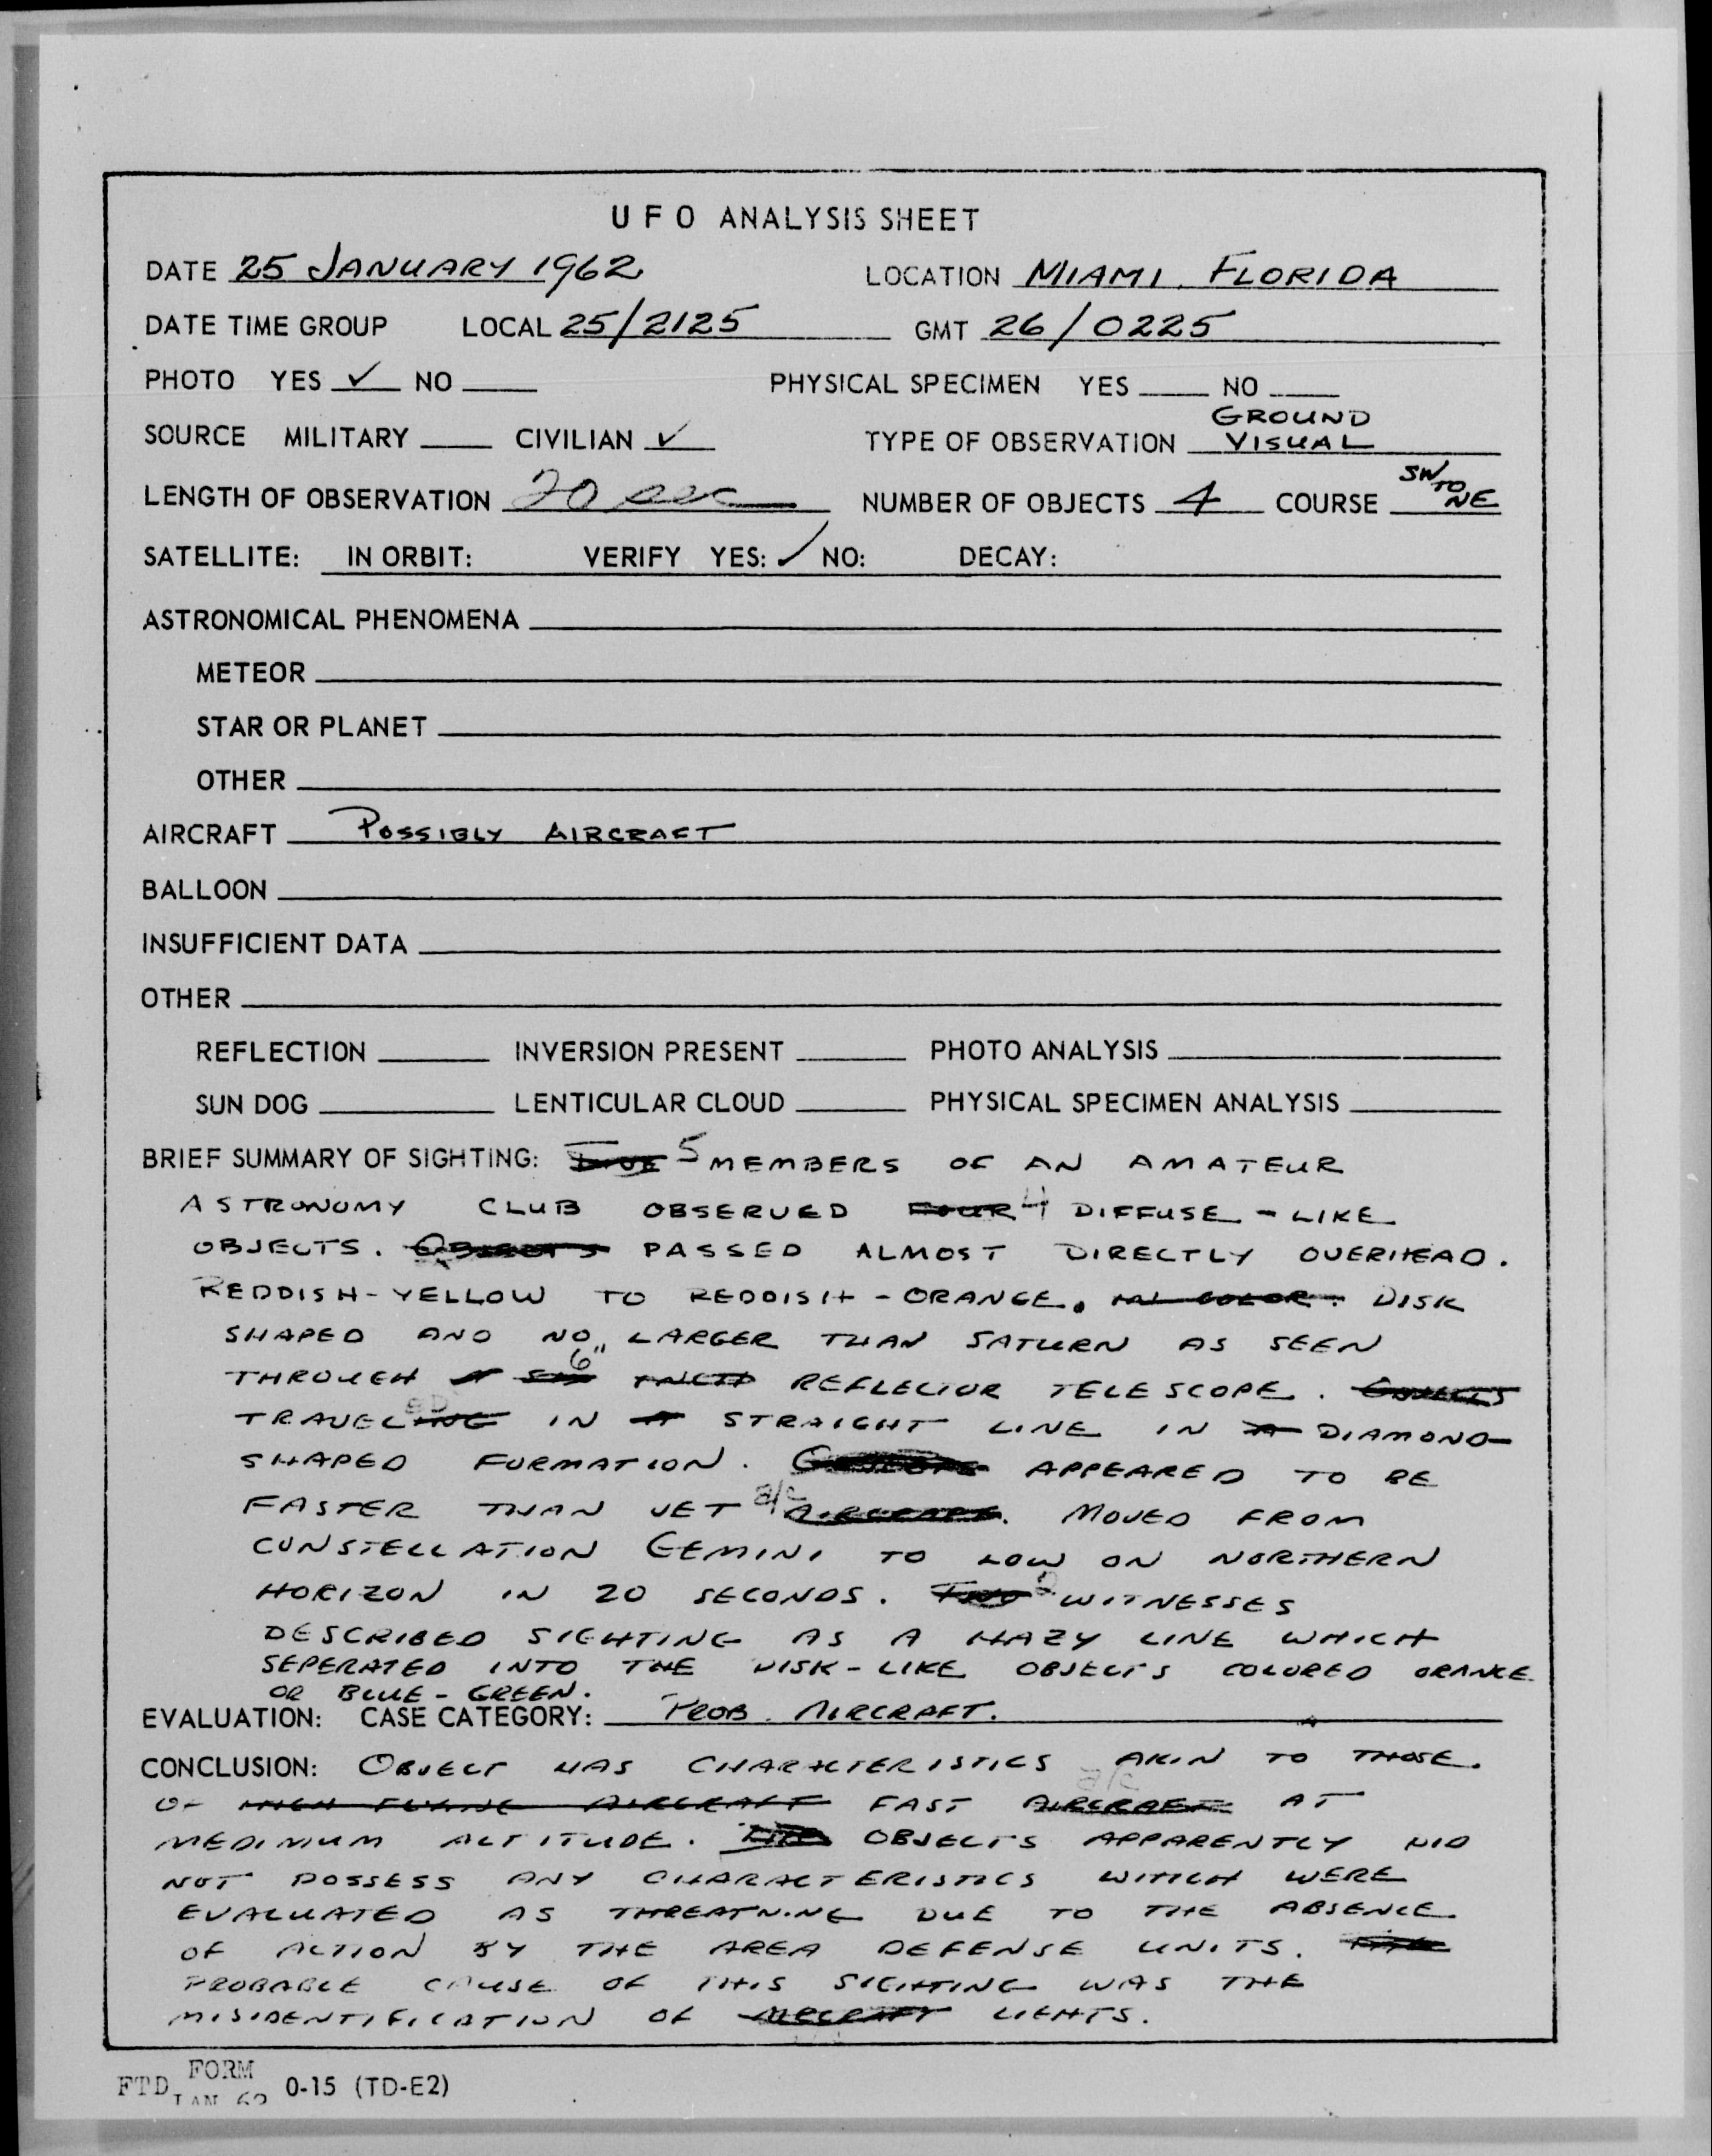 UFO ANALYSIS SHEET
DATE 25 JANUARY 1962 LOCATION MIAMI, FLORIDA
DATE TIME GROUP LOCAL 25/2125 GMT 26/0225
PHOTO YES ✓ NO PHYSICAL SPECIMEN YES NO
SOURCE MILITARY CIVILIAN ✓ TYPE OF OBSERVATION GROUND VISUAL
LENGTH OF OBSERVATION 20 sec NUMBER OF OBJECTS 4 COURSE SW TO NE
SATELLITE: IN ORBIT: VERIFY YES: ✓ NO: DECAY:
ASTRONOMICAL PHENOMENA
METEOR
STAR OR PLANET
OTHER
AIRCRAFT POSSIBLY AIRCRAFT
BALLOON
INSUFFICIENT DATA
OTHER
REFLECTION INVERSION PRESENT PHOTO ANALYSIS
SUN DOG LENTICULAR CLOUD PHYSICAL SPECIMEN ANALYSIS
BRIEF SUMMARY OF SIGHTING: 5 MEMBERS OF AN AMATEUR
ASTRONOMY CLUB OBSERVED FOUR 4 DIFFUSE - LIKE
OBJECTS. OBJECTS PASSED ALMOST DIRECTLY OVERHEAD.
REDDISH-YELLOW TO REDDISH-ORANGE. IN COLOR. DISK
SHAPED AND NO LARGER THAN SATURN AS SEEN
THROUGH A SIX 6" INCH REFLECTOR TELESCOPE. OBJECTS
TRAVELING ED IN A STRAIGHT LINE IN A DIAMOND
SHAPED FORMATION. APPEARED TO BE
FASTER THAN JET a/c AIRCRAFT. MOVED FROM
CONSTELLATION GEMINI TO LOW ON NORTHERN
HORIZON IN 20 SECONDS. TWO 2 WITNESSES
DESCRIBED SIGHTING AS A HAZY LINE WHICH
SEPERATED INTO THE DISK-LIKE OBJECTS COLORED ORANGE
OR BLUE-GREEN.
EVALUATION: CASE CATEGORY: PROB. AIRCRAFT.
CONCLUSION: OBJECT HAS CHARACTERISTICS AKIN TO THOSE.
OF HIGH FLYING AIRCRAFT FAST a/c AIRCRAFT AT
MEDINIUM ALTITUDE. OBJECTS APPARENTLY DID
NOT POSSESS ANY CHARACTERISTICS WHICH WERE
EVALUATED AS THREATNING DUE TO THE ABSENCE
OF ACTION BY THE AREA DEFENSE UNITS.
PROBABLE CAUSE OF THIS SIGHTING WAS THE
MISIDENTIFICATION OF AIRCRAFT LIGHTS.
FTD FORM JAN 62 0-15 (TD-E2)